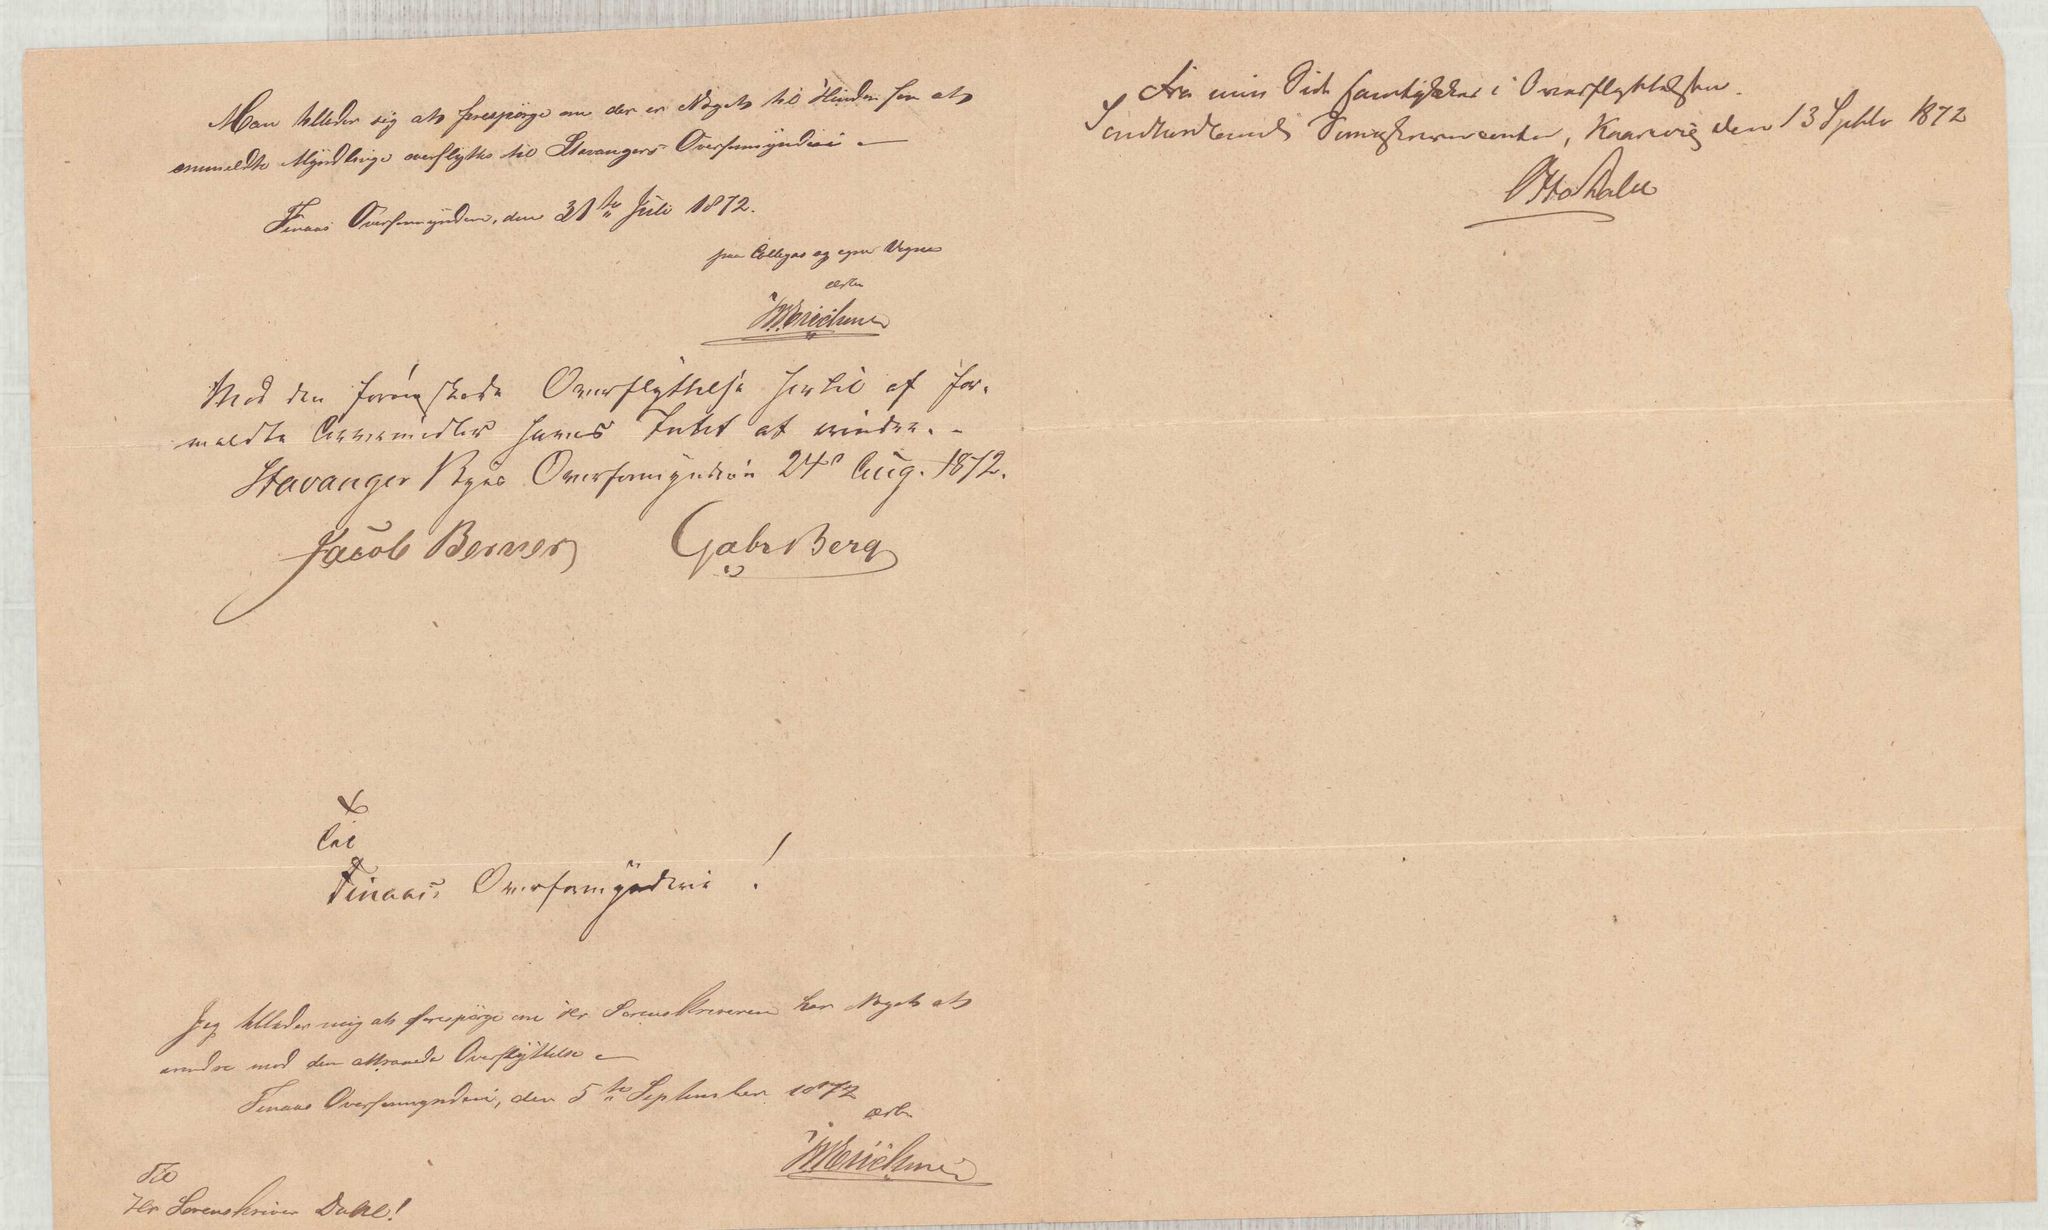 Man tillader sig at forespørge om der er Noget til Hinder for at
anmeldte Myndlinge overflyttes til Stavangers Overformynderi
Finaas Overformynderi, den 31te Juli 1872.
paa Collegas og egne Vegne
ærb.
Med den foreslagede Overflyttelse hertil af for-
meldte Arvemidler haves Intet at erindre.-
Stavanger Byes Overformynderi 24de Aug. 1872.
Jacob Berner Gabr Berg
Til
Finaas Overformynderi!
Jeg tillader mig at forespørge om Hr Sorenskriveren har Noget at
erindre mod den attraaede Overflyttelse
Finaas Overformynderi, den 5te September 1872
ærb.
Til
Hr Sorenskriver Dahl!
Fra min Side samtykkes i Overflyttelsen.
Søndhordlands Sorenskriverembede, den 13 Septbr 1872
Otto Dahl